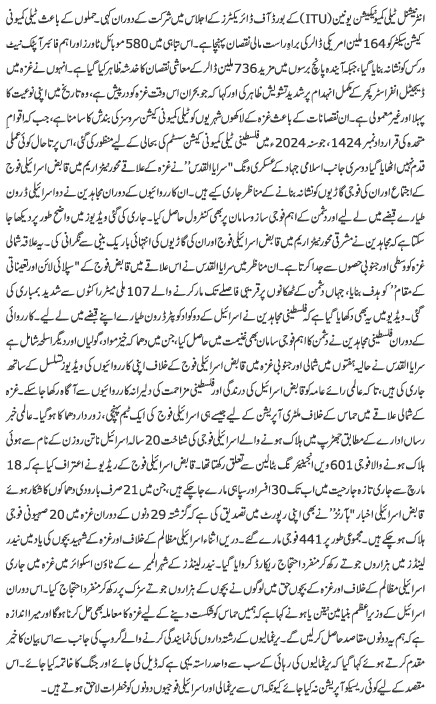 انٹرنیشنل ٹیلی کمیونیکیشن یونین (ITU) کے بورڈ آف ڈائریکٹرز کے اجلاس میں شرکت کے دوران کہی حملوں کے باعث ٹیلی کمیونی
کیشن سیکٹر کو 164 ملین امریکی ڈالر کی براہِ راست مالی نقصان پہنچا ہے۔ اس تباہی میں 580 موبائل ٹاورز اور اہم فائبر آپٹک نیٹ
ورکس کو نشانہ بنایا گیا، جبکہ آئندہ پانچ برسوں میں مزید 736 ملین ڈالر کے معاشی نقصان کا خدشہ ظاہر کیا گیا ہے۔ انہوں نے غزہ میں
ڈیجیٹل انفراسٹرکچر کے مکمل انہدام پر شدید تشویش ظاہر کی اور کہا کہ جو بحران اس وقت غزہ کو درپیش ہے، وہ تاریخ میں اپنی نوعیت کا
پہلا اور غیر معمولی ہے۔ ان نقصانات کے باعث غزہ کے لاکھوں شہریوں کو ٹیلی کمیونی کیشن سروسز کی بندش کا سامنا ہے، جس کہ اقوامِ
متحدہ کی قرارداد نمبر 1424، جو سنہ 2024 میں فلسطینی ٹیلی کمیونی کیشن سسٹم کی بحالی کے لیے منظور کی گئی، اس پر تاحال کوئی عملی
قدم نہیں اٹھایا گیا دوسری جانب اسلامی جہاد کے عسکری ونگ "سرایا القدس" نے غزہ کے علاقے محور نیٹزاریم میں قابض اسرائیلی فوج
کے اجتماع اور ان کی فوجی گاڑیوں کو نشانہ بنانے کے مناظر جاری کیے ہیں۔ ان کارروائیوں کے دوران مجاہدین نے دو اسرائیلی ڈرون
طیارے قبضے میں لے لیے اور دشمن کے اہم فوجی ساز و سامان پر بھی کنٹرول حاصل کیا۔ جاری کی گئی ویڈیوز میں واضح طور پر دیکھا جا
سکتا ہے کہ مجاہدین نے مشرقی محور نیٹزاریم میں قابض اسرائیلی فوج اور ان کی گاڑیوں کی انتہائی باریک بینی سے نگرانی کی۔ یہ علاقہ شمالی
غزہ کو وسطی اور جنوبی حصوں سے جدا کرتا ہے۔ ان مناظر میں سرایا القدس نے اس علاقے میں قابض فوج کے "سپلائی لائن اور تعیناتی
کے مقام" کو ہدف بنایا، جہاں دشمن کے ٹھکانوں پر قریبی فاصلے تک مار کرنے والے 107 ملی میٹر راکٹوں سے شدید بمباری کی
گئی۔ ویڈیو میں یہ بھی دکھایا گیا ہے کہ فلسطینی مجاہدین نے اسرائیل کے دو کواڈ کوپٹر ڈرون طیارے اپنے قبضے میں لیے۔ کارروائی
کے دوران فلسطینی مجاہدین نے قابض اسرائیل کا اہم فوجی سامان بھی غنیمت میں حاصل کیا، جن میں دھماکہ خیز مواد، گولیاں اور دیگر اسلحہ شامل ہے
سرایا القدس نے حالیہ ہفتوں میں شمالی اور جنوبی غزہ میں قابض اسرائیلی فوج کے خلاف اپنی کارروائیوں کی ویڈیوز تسلسل کے ساتھ
جاری کی ہیں، تاکہ عالمی رائے عامہ کو قابض اسرائیل کی درندگی اور فلسطینی مزاحمت کی دلیرانہ کارروائیوں سے آگاہ رکھا جا سکے۔ غزہ
کے شمالی علاقے میں حماس کے خلاف ملٹری آپریشن کے لیے جیسے ہی اسرائیلی فوج کی ایک ٹیم پہنچی، زوردار دھماکا ہو گیا۔ عالمی خبر
رساں ادارے کے مطابق جھڑپ میں ہلاک ہونے والے اسرائیلی فوجی کی شناخت 20 سالہ اسرائیل ناتن روزن کے نام سے ہوئی
ہلاک ہونے والا فوجی 601 ویں انجینیئرنگ بٹالین سے تعلق رکھتا تھا۔ قابض اسرائیلی فوج کے ریڈیو نے اعتراف کیا ہے کہ 18
مارچ سے جاری تازہ جارحیت میں اب تک 30 افسر اور سپاہی مارے جا چکے ہیں، جن میں 21 صرف بارودی دھماکوں کا شکار ہوئے
قابض اسرائیلی اخبار "ہآرٹز" نے بھی اپنی رپورٹ میں تصدیق کی ہے کہ گزشتہ 29 دنوں کے دوران غزہ میں 20 صہیونی فوجی
ہلاک ہو چکے ہیں۔ مجموعی طور پر 441 فوجی مارے گئے ہیں۔ دریں اثناء اسرائیلی مظالم کے خلاف اور غزہ کے شہید بچوں کی یاد میں نیدر
لینڈز میں ہزاروں جوتے رکھ کر منفرد احتجاج ریکارڈ کروایا گیا۔ نیدر لینڈز کے شہر المیرے کے ٹاؤن اسکوائر میں غزہ میں جاری
اسرائیلی مظالم کے خلاف اور غزہ کے بچوں حق میں لوگوں نے بچوں کے ہزاروں جوتے سڑک پر رکھ کر منفرد احتجاج کیا۔ اس دوران
غزہ کے وزیراعظم بنیامین نیتن یاہو نے کہا ہے کہ ہمیں حماس کو شکست دینے کے لیے غزہ کا معاملہ بھی حل کرنا ہوگا اور میرا اندازہ
ہے کہ ہم یہ دونوں مقاصد حاصل کر لیں گے۔ یرغمالیوں کے رشتہ داروں کی نمائندگی کرنے والے گروپ کی جانب سے اس بیان کا خیر
مقدم کرتے ہوئے کہا گیا کہ یرغمالیوں کی رہائی کے سب سے واحد راستہ یہی ہے کہ ڈیل کی جائے اور جنگ کا خاتمہ کیا جائے۔ اس
مقصد کے لیے کوئی ریسکیو آپریشن نہ کیا جائے کیونکہ اس سے یرغمالی اور اسرائیلی فوجیوں دونوں کو خطرات لاحق ہوتے ہیں۔